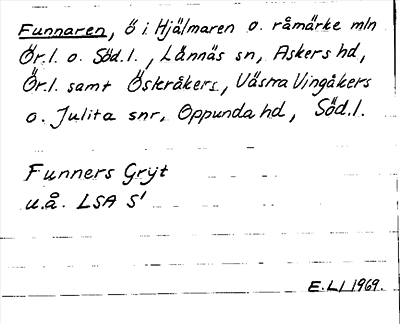 Funnaren, ö i Hjälmaren o. råmärke mln
Ör.l. o. Söd.l., Lännäs sn, Askers hd,
Ör.l. samt Österåkers, Västra Vingåkers
o. Julita snr, Oppunda hd, Söd.l.
Funners Gryt
u.å. LSA S1
E.LI 1969.